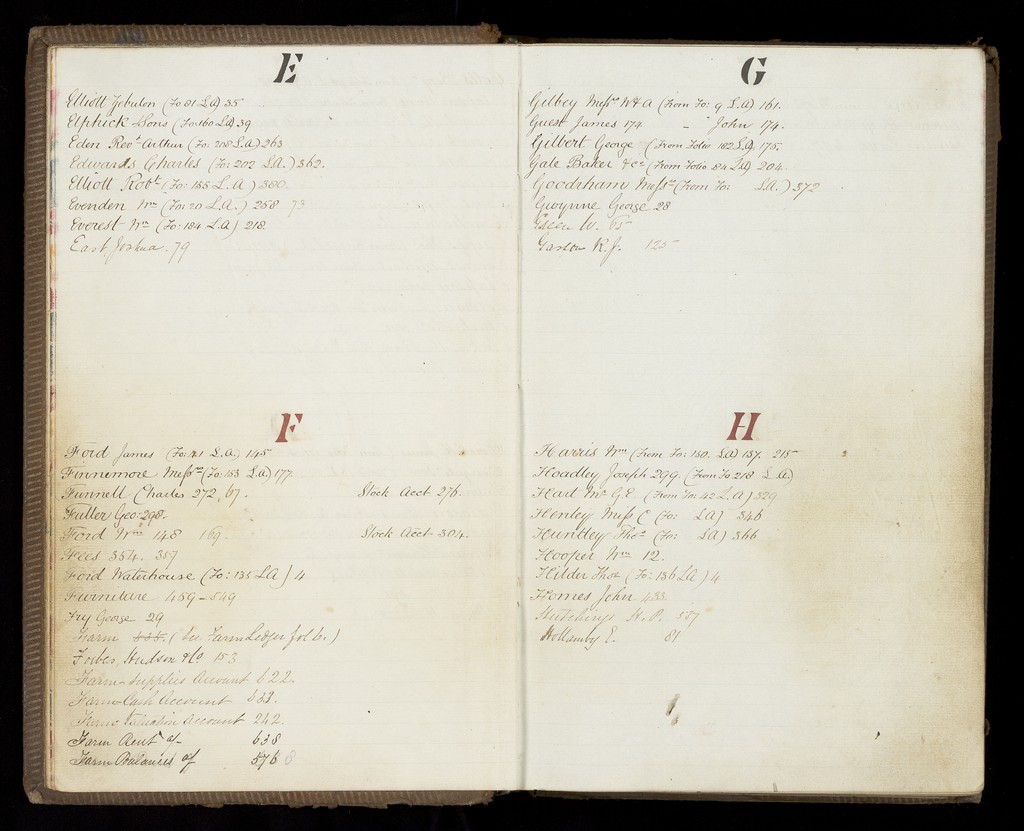 E
Elliott Zebulon (Fo 81 L.A) 35
Elphick & Sons (Fo: 160 LA) 39
Eden Revd. Arthur (Fo: 208 L.A) 263
Edwards Charles (Fo: 202 LA.) 362.
Elliott Robt. (Fo: 135 L.A) 360.
Evenden Wm (Fo: 20 L.A.) 258 73
Everest Wm (Fo: 184 L.A) 218.
East, Joshua. 79
F
Ford James (Fo: 71 L.A.) 145
Finnemore Messrs (Fo: 153 L.A) 177
Funnell Charles 272, 67. Stock Acct 276.
Fuller Geo: 298.
Ford Wm 148 169. Stock Acct 304.
Fees 354. 357
Ford Waterhouse (Fo: 135 LA) 4
Furniture 459-549
Fry George 29
Farm 555. (See Farm Ledger fol 6.)
Foster, Hudson & Co 153
Farm-Supplies Account 622.
Farm-Cash Account 633.
Farm-Valuation Account 242.
Farm Rent a/- 638
Farm Balances a/ 576 8
G
Gilbey Messrs W & A (From Fo: 9 L.A) 161.
Guest James 174 - John 174.
Gilbert George (From Folio 182 LA) 175.
Gale Baker & Co (From Folio 84 LA) 204.
Goodsham Messrs (From Fo: LA.) 372
Gwynne George 28
Green W. 65
Gaston R.J. 125
H
Harris Wm (From Fo: 150. LA) 157. 215
Hoadley Joseph 299. (From Fo 218 L.A.)
Hart Mr G.E. (From Fo: 42 L.A) 329
Henley Miss C (Fo: LA) 346
Huntley Thos (Fo: LA) 366
Hooper Wm 12.
Hilder Thos (Fo: 136 LA) 4
Homes John 433.
Hutchings H.P. 557
Hollamby E. 81